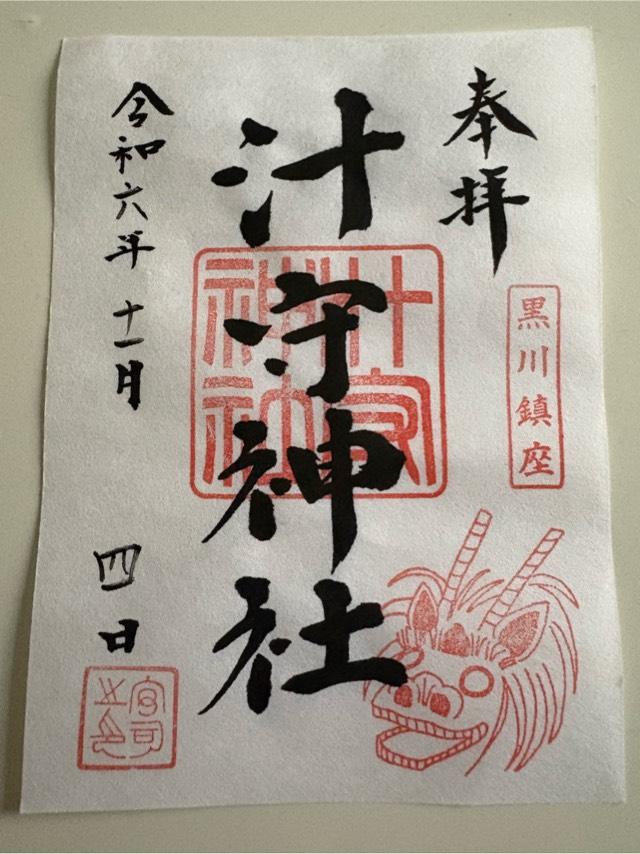 奉拝
黒川鎮座
汁守神社
汁守神社
令和六年十一月四日
宮司之印